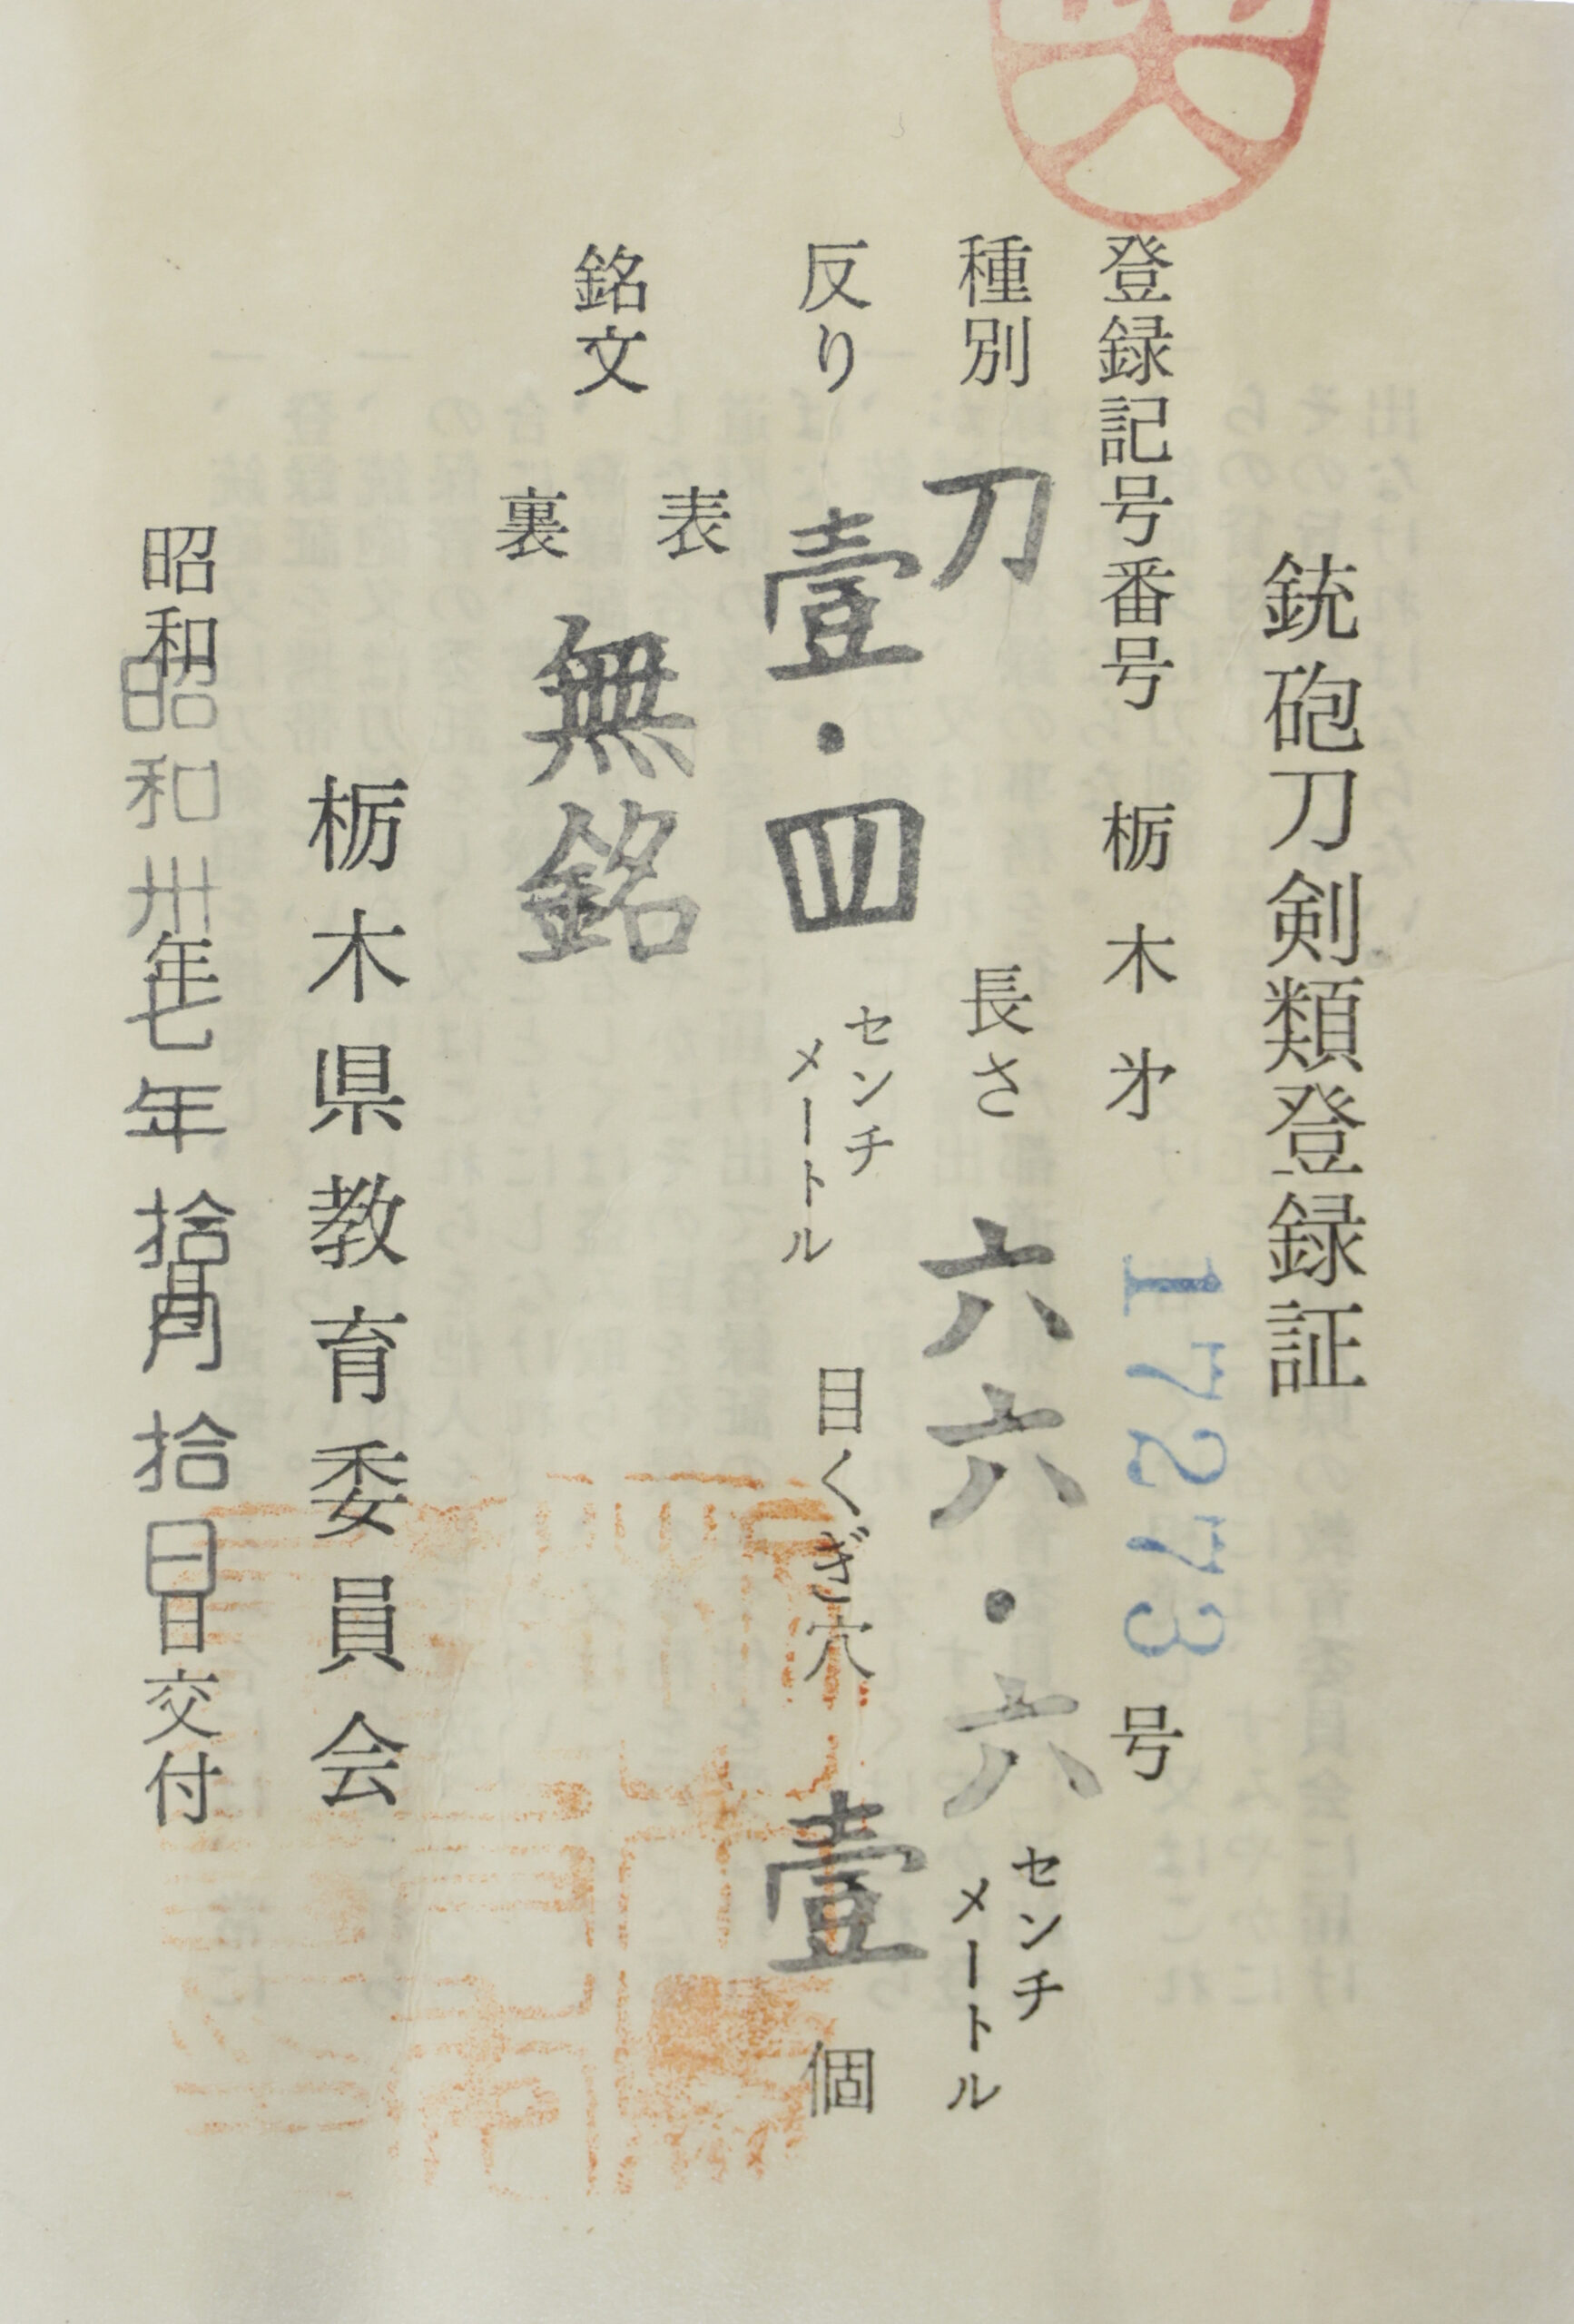 銃砲刀剣類登録証
登録記号番号 栃木㐧 17273 号
種別 刀 長さ 六六・六 センチメートル
反り 壹・四 センチメートル 目くぎ穴 壹 個
銘文 表 裏 無銘
栃木県教育委員会
昭和 昭和卅七年拾月拾日 年 月 日交付